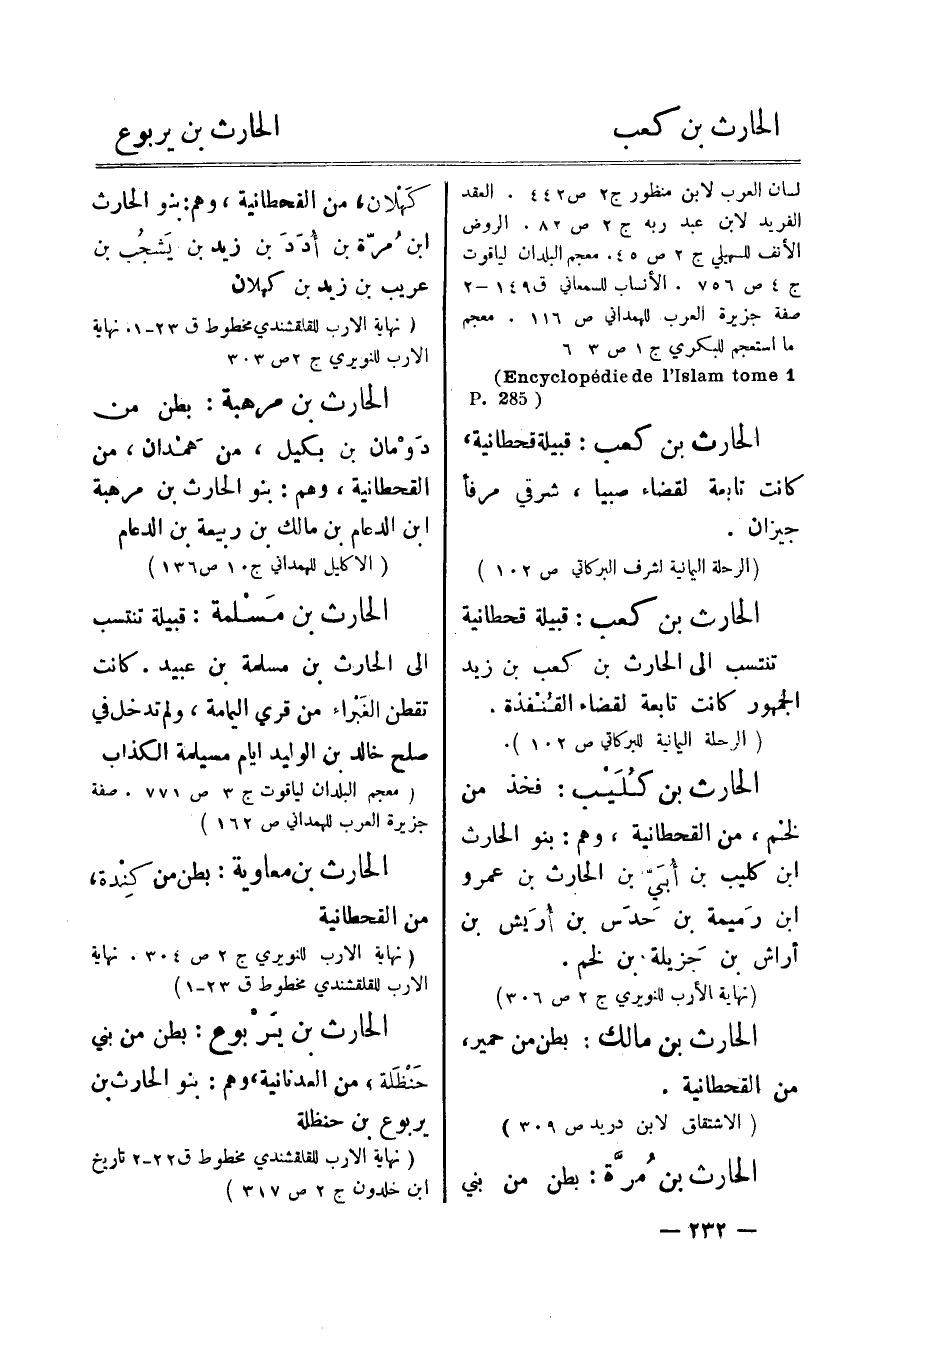 الحارث بن كعب
الحارث بن يربوع
لسان العرب لابن منظور ج٢ ص٤٤٢ . العقد
الفريد لابن عبد ربه ج ٢ ص ٨٢ . الروض
الأنف للسهيلي ج ٢ ص ٤٥ . معجم البلدان لياقوت
ج ٤ ص ٧٥٦ . الأنساب للسمعاني ق١٤٩-٢
صفة جزيرة العرب للهمداني ص ١١٦ . معجم
ما استعجم للبكري ج ١ ص ٣ ٦
(Encyclopédie de l'Islam tome 1
P. 285 )
الحارث بن كعب : قبيلة قحطانية،
كانت تابعة لقضاء صبيا ، شرقي مرفأ
جيزان .
(الرحلة اليمانية لشرف البركاتي ص ١٠٢ )
الحارث بن كعب : قبيلة قحطانية
تنتسب الى الحارث بن كعب بن زيد
الجمهور كانت تابعة لقضاء القُنْفذة .
( الرحلة اليمانية للبركاتي ص ١٠٢ ).
الحارث بن كُلَيْب : فخذ من
لخْم ، من القحطانية ، وهم : بنو الحارث
ابن كليب بن أُبَيّ بن الحارث بن عمرو
ابن رَميمة بن حَدَس بن أُرَيش بن
أراش بن جَزيلة بن لخم .
(نهاية الأرب للنويري ج ٢ ص ٣٠٦)
الحارث بن مالك : بطن من حمير،
من القحطانية .
( الاشتقاق لابن دريد ص ٣٠٩ )
الحارث بن مُرَّة : بطن من بني
كَهْلان، من القحطانية ، وهم: بنو الحارث
ابن مُرّة بن أُدَدَ بن زيد بن يَشجُب بن
عريب بن زيد بن كهلان
( نهاية الارب للقلقشندي مخطوط ق ٢٣-١، نهاية
الارب للنويري ج ٢ص ٣٠٣
الحارث بن مرهبة : بطن من
دَوْمان بن بكيل ، من هَمْدان ، من
القحطانية ، وهم : بنو الحارث بن مرهبة
ابن الدعام بن مالك بن ربيعة بن الدعام
( الاكليل للهمداني ج١٠ ص١٣٦ )
الحارث بن مَسْلمة : قبيلة تنتسب
الى الحارث بن مسلمة بن عبيد . كانت
تقطن الغَبْراء من قري اليمامة ، ولم تدخل في
صلح خالد بن الوليد ايام مسيلمة الكذاب
( معجم البلدان لياقوت ج ٣ ص ٧٧١ . صفة
جزيرة العرب للهمداني ص ١٦٢ )
الحارث بن معاوية : بطن من كِنْدة،
من القحطانية
( نهاية الارب للنويري ج ٢ ص ٣٠٤ . نهاية
الارب للقلقشندي مخطوط ق ٢٣-١)
الحارث بن يَرْبوع : بطن من بني
حَنْظَلة ، من العدنانية، وهم : بنو الحارث بن
يربوع بن حنظلة
( نهاية الارب للقلقشندي مخطوط ق٢٢-٢ تاريخ
ابن خلدون ج ٢ ص ٣١٧ )
— ٢٣٢ —